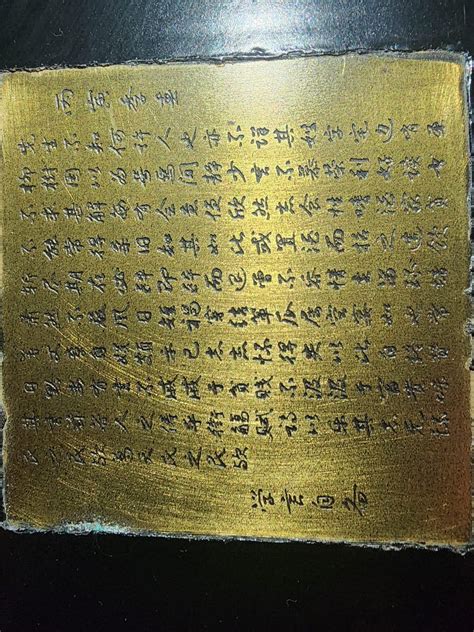 丙寅
先生不知何許人也亦不詳其姓字宅邊有五
柳樹因以為號焉閒靜少言不慕榮利好讀書
不求甚解每有會意便欣然忘食性嗜酒家貧
不能常得親舊知其如此或置酒而招之造飲
輒盡期在必醉既醉而退曾不吝情去留環堵
蕭然不蔽風日短褐穿結簞瓢屢空晏如也常
著文章自娛頗示己志忘懷得失以此自終贊
曰黔婁有言不戚戚于貧賤不汲汲于富貴味
其言茲若人之儔乎銜觴賦詩以樂其志無懷
氏之民歟葛天氏之民歟